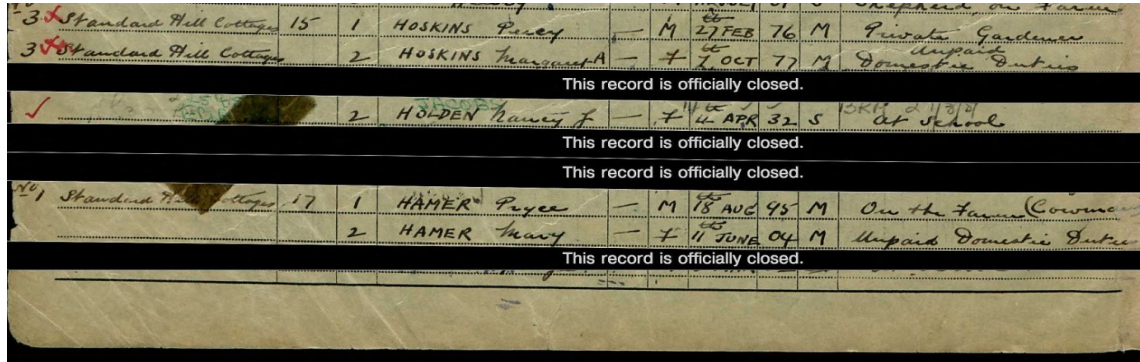 3 Standard Hill Cottages 15 1 HOSKINS Percy — M 27th FEB 76 M Private Gardener
3 Standard Hill Cottages 2 HOSKINS Margaret A — F 7th OCT 77 M Unpaid Domestic Duties
This record is officially closed.
JACOBS
2 HOLDEN Nancy J — F 4th APR 32 S At School
This record is officially closed.
This record is officially closed.
No 1 Standard Hill Cottages 17 1 HAMER Pryce — M 18th AUG 95 M On the Farm (Cowman
2 HAMER Mary — F 11th JUNE 04 M Unpaid Domestic Duties
This record is officially closed.